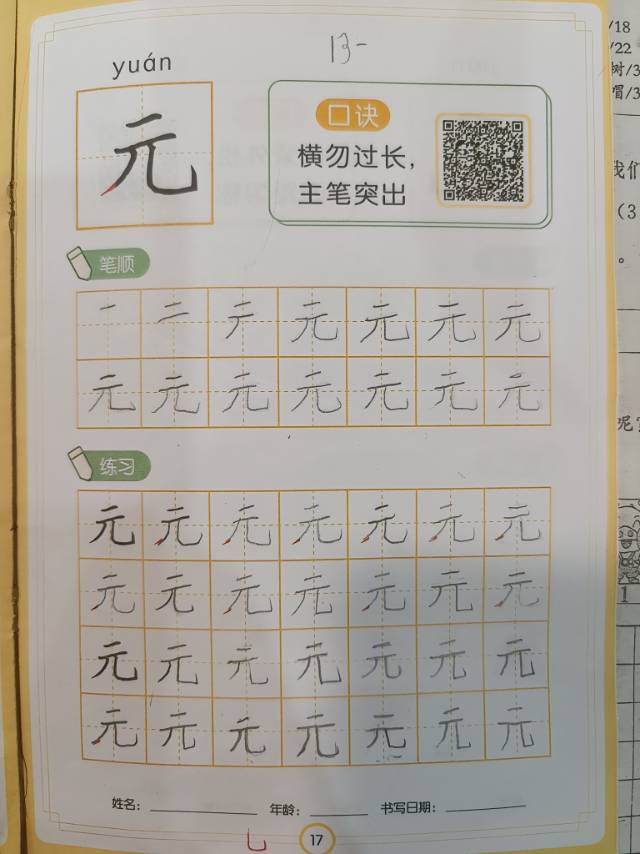 13-
yuán
元
口诀
横勿过长，
主笔突出
笔顺
一 二 元 元 元 元
元 元 元 元 元 元 元
练习
元 元 元 元 元 元 元
元 元 元 元 元 元 元
元 元 元 元 元 元 元
元 元 元 元 元 元 元
姓名： 年龄： 书写日期：
17
/18
/22
树/3
冒/3
我们
(3
。
呢
1